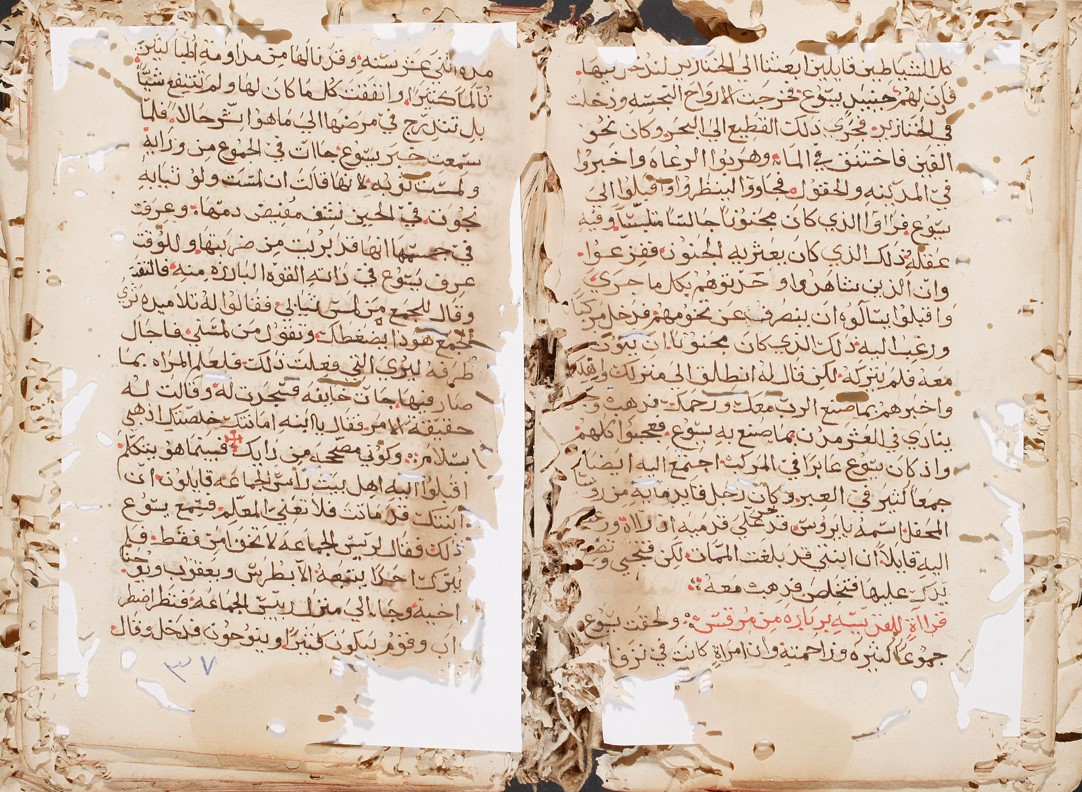 كل الشياطين قايلين ابعثنا الى الخنازير لندخل فيها.
فاذن لهم حينئذ يسوع فخرجت الارواح النجسه ودخلت
في الخنازير فجرى ذلك القطيع الى البحر وكان نحو
الفين فاختنق في الماء وهربوا الرعاه واخبروا
في المدينه والحقول فجاووا لينظروا واقبلوا الى
يسوع فراوا الذي كان مجنونا جالسا متلبسا وفيه
عقله ذلك الذي كان يعتريه الجنون ففزعوا.
وان الذين شاهدوا خبروهم بكلما جرى
واقبلوا يسالوه ان ينصرف عن تخومهم فدخل مركبا
ورغب اليه ذلك الذي كان مجنونا ان يكون
معه فلم يتركه لكن قال له انطلق الى منزلك
واخبرهم بما صنع الرب معك ورحمك فذهب
ينادي في العشر مدن بما صنع به يسوع فعجبوا كلهم
واذ كان يسوع عابرا في المركب اجتمع اليه ايضا
جمعا كثير في العبر وكان رجل قايد مايه من رووسا
المحفل اسمه يايروس فخر على قدميه
اليه قايلا ان ابنتي قد بلغت الممات لكن فتجي وتضع
يدك عليها فتخلص فذهب معه
قراءة للقديسه بربارة من مرقس ولحقت يسوع
جموعا كثيره وزاحمته وان امراة كانت في نزف
مده اثني عشر سنه وقد نالها من مداومة اطبا كثيرين
تالما كثيرا وانفقت كلما كان لها ولم تنتفع شيا
بل تتدرج في مرضها الى ما هو اشر حالا فلما
سمعت خبر يسوع جاات في الجموع من ورائه
ولمست ثوبه لانها قالت ان لمست ولو ثيابه
نجوت ففي الحين نشف مفيض دمها وعرفت
في جسمها انها قد بريت من ضربتها وللوقت
عرف يسوع في ذاته القوه البارزه منه فالتفت
وقال للجمع من لمس ثيابي فقالوا له تلاميذه ترى
الجمع هوذا يضغطك وتقول من لمسني فاجال
طرفه ليرى التي فعلت ذلك فلعلم المراه بما
صار فيها جات خايفه فسجدت له وقالت له
حقيقة الامر فقال يا ابنه امانتك خلصتك اذهبي
بسلامه وكوني مصححه من دايك فبينما هو يتكلم
اقبلوا اليه اهل بيت راس الجماعه قايلون ان
ابنتك قد ماتت فلا تعني المعلم فسمع يسوع
ذلك وقال لريس الجماعه لا تخف امن فقط فلم
يترك احدا يتبعه الا بطرس ويعقوب ويوحنا
اخيه وجا الى منزل رييس الجماعه فنظر اضطرا
ب وقوم يبكون كثيرا وينوحون فدخل وقال
٣٧